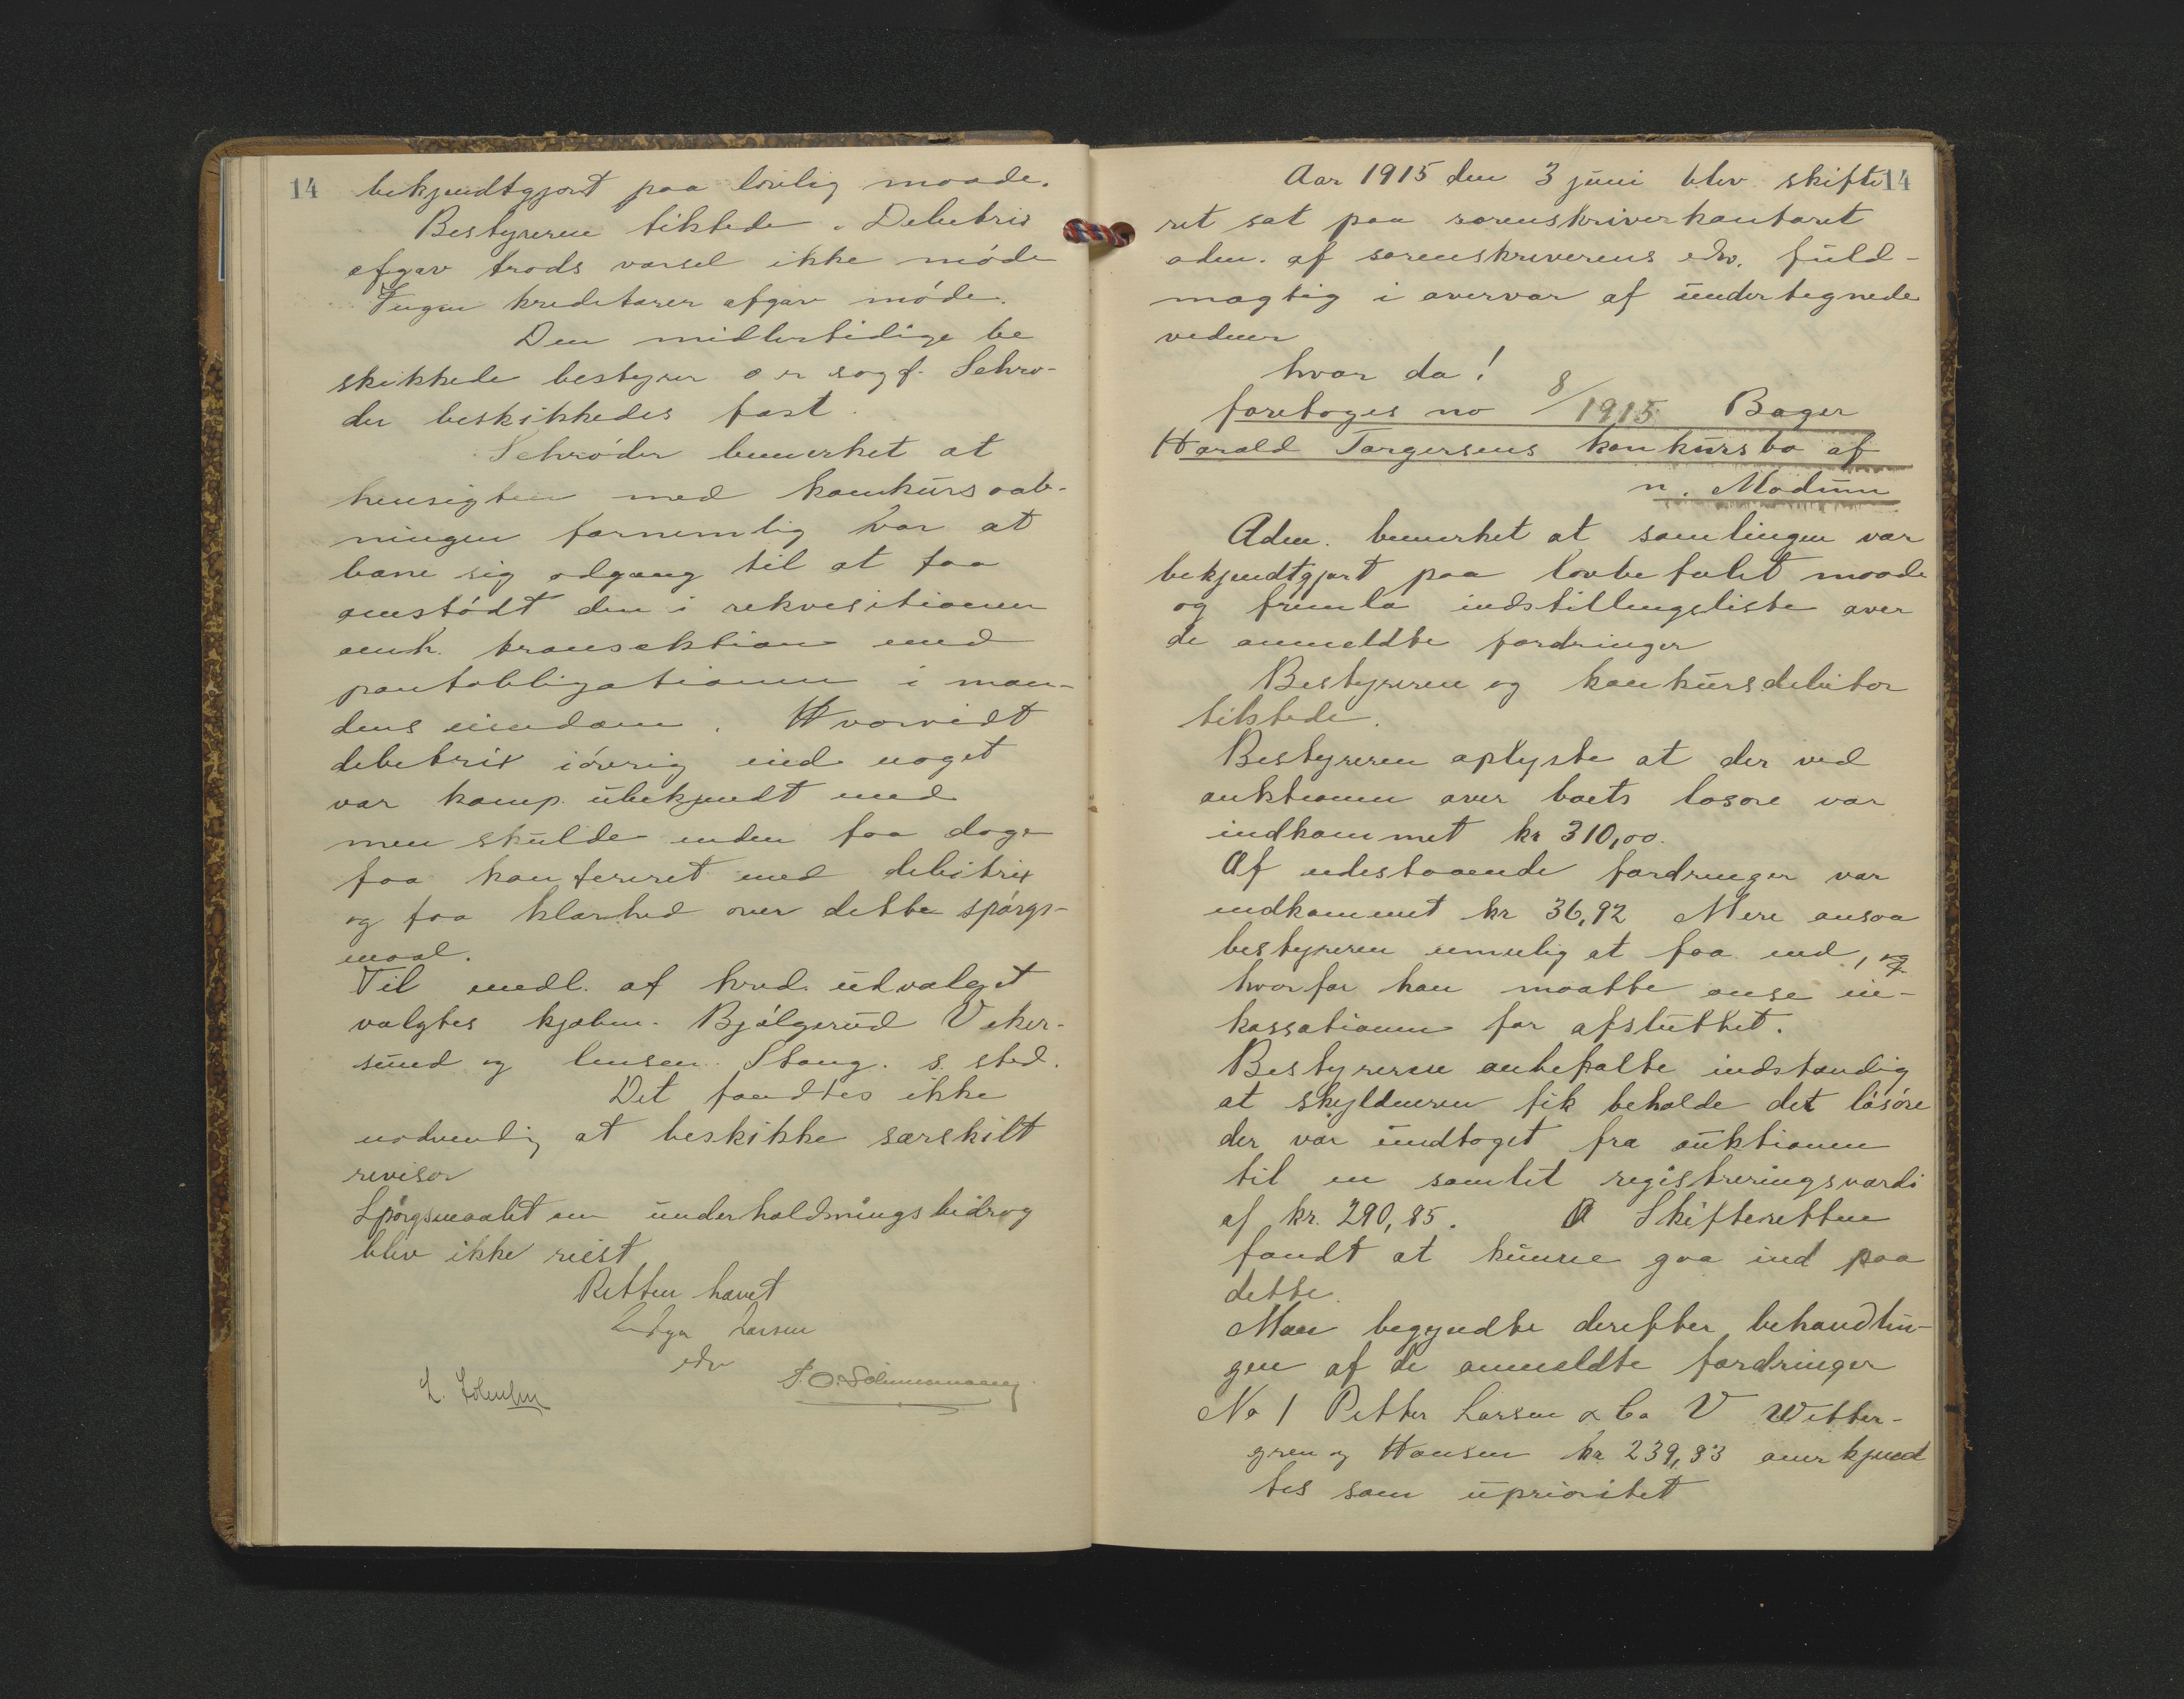 14
bekjendtgjort paa lovlig maade.
Bestyreren tilstede. Debetrix
afgav trods varsel ikke møde
Ingen kreditorer afgav møde.
Den midlertidige be
skikkede bestyrer o r sagf. Schrø-
der beskikkedes fast.
Schrøder bemerket at
hensigten med konkursaab-
ningen fornemlig var at
bane sig adgang til at faa
omstødt den i rekvisitionen
omh. transaktion med
pantobligationen i man-
dens eiendom. Hvorvidt
debetrix iøvrig eied noget
var komp. ubekjendt med
men skulde inden faa dage
faa konfereret med debitrix
og faa klarhed over dette spørgs-
maal.
Til medl. af kred. udvalget
valgtes kjøbm. Bjølgerud Viker-
sund og lensm. Stang. s. sted.
Det fandtes ikke
nødvendig at beskikke særskilt
revisor
Spørgsmaalet om underholdningsbidrag
blev ikke reist
Retten hævet
Larsen
edv
14
Aar 1915 den 3 juni blev skifte
ret sat paa sorenskriverkontoret
adm. af sorenskriverens edv. fuld-
mægtig i overvær af undertegnede
vedner
hvor da!
foretoges no 8/1915 Bager
Harald Torgersens konkursbo af
n. Modum
Adm. bemerket at samlingen var
bekjendtgjort paa lovbefalet maade
og fremla indstillingsliste over
de anmeldte fordringer
Bestyreren og konkursdebitor
tilstede.
Bestyreren oplyste at der ved
auktionen over boets løsøre var
indkommet kr 310,00.
Af udestaaende fordringer var
indkommet kr 36,92 Mere ansaa
bestyreren umulig at faa ind, og
hvorfor han maatte anse in-
kassationen for afsluttet.
Bestyreren anbefalte indstændig
at skyldneren fik beholde det løsøre
der var undtaget fra auktionen
til en samlet registreringsværdi
af kr. 290,85. Skifteretten
fandt at kunne gaa ind paa
dette.
Man begyndte derefter behandlin-
gen af de anmeldte fordringer
No 1 Petter Larsen & Co V Witter-
gren og Hansen kr 239,93 anerkjend
tes som uprioritet